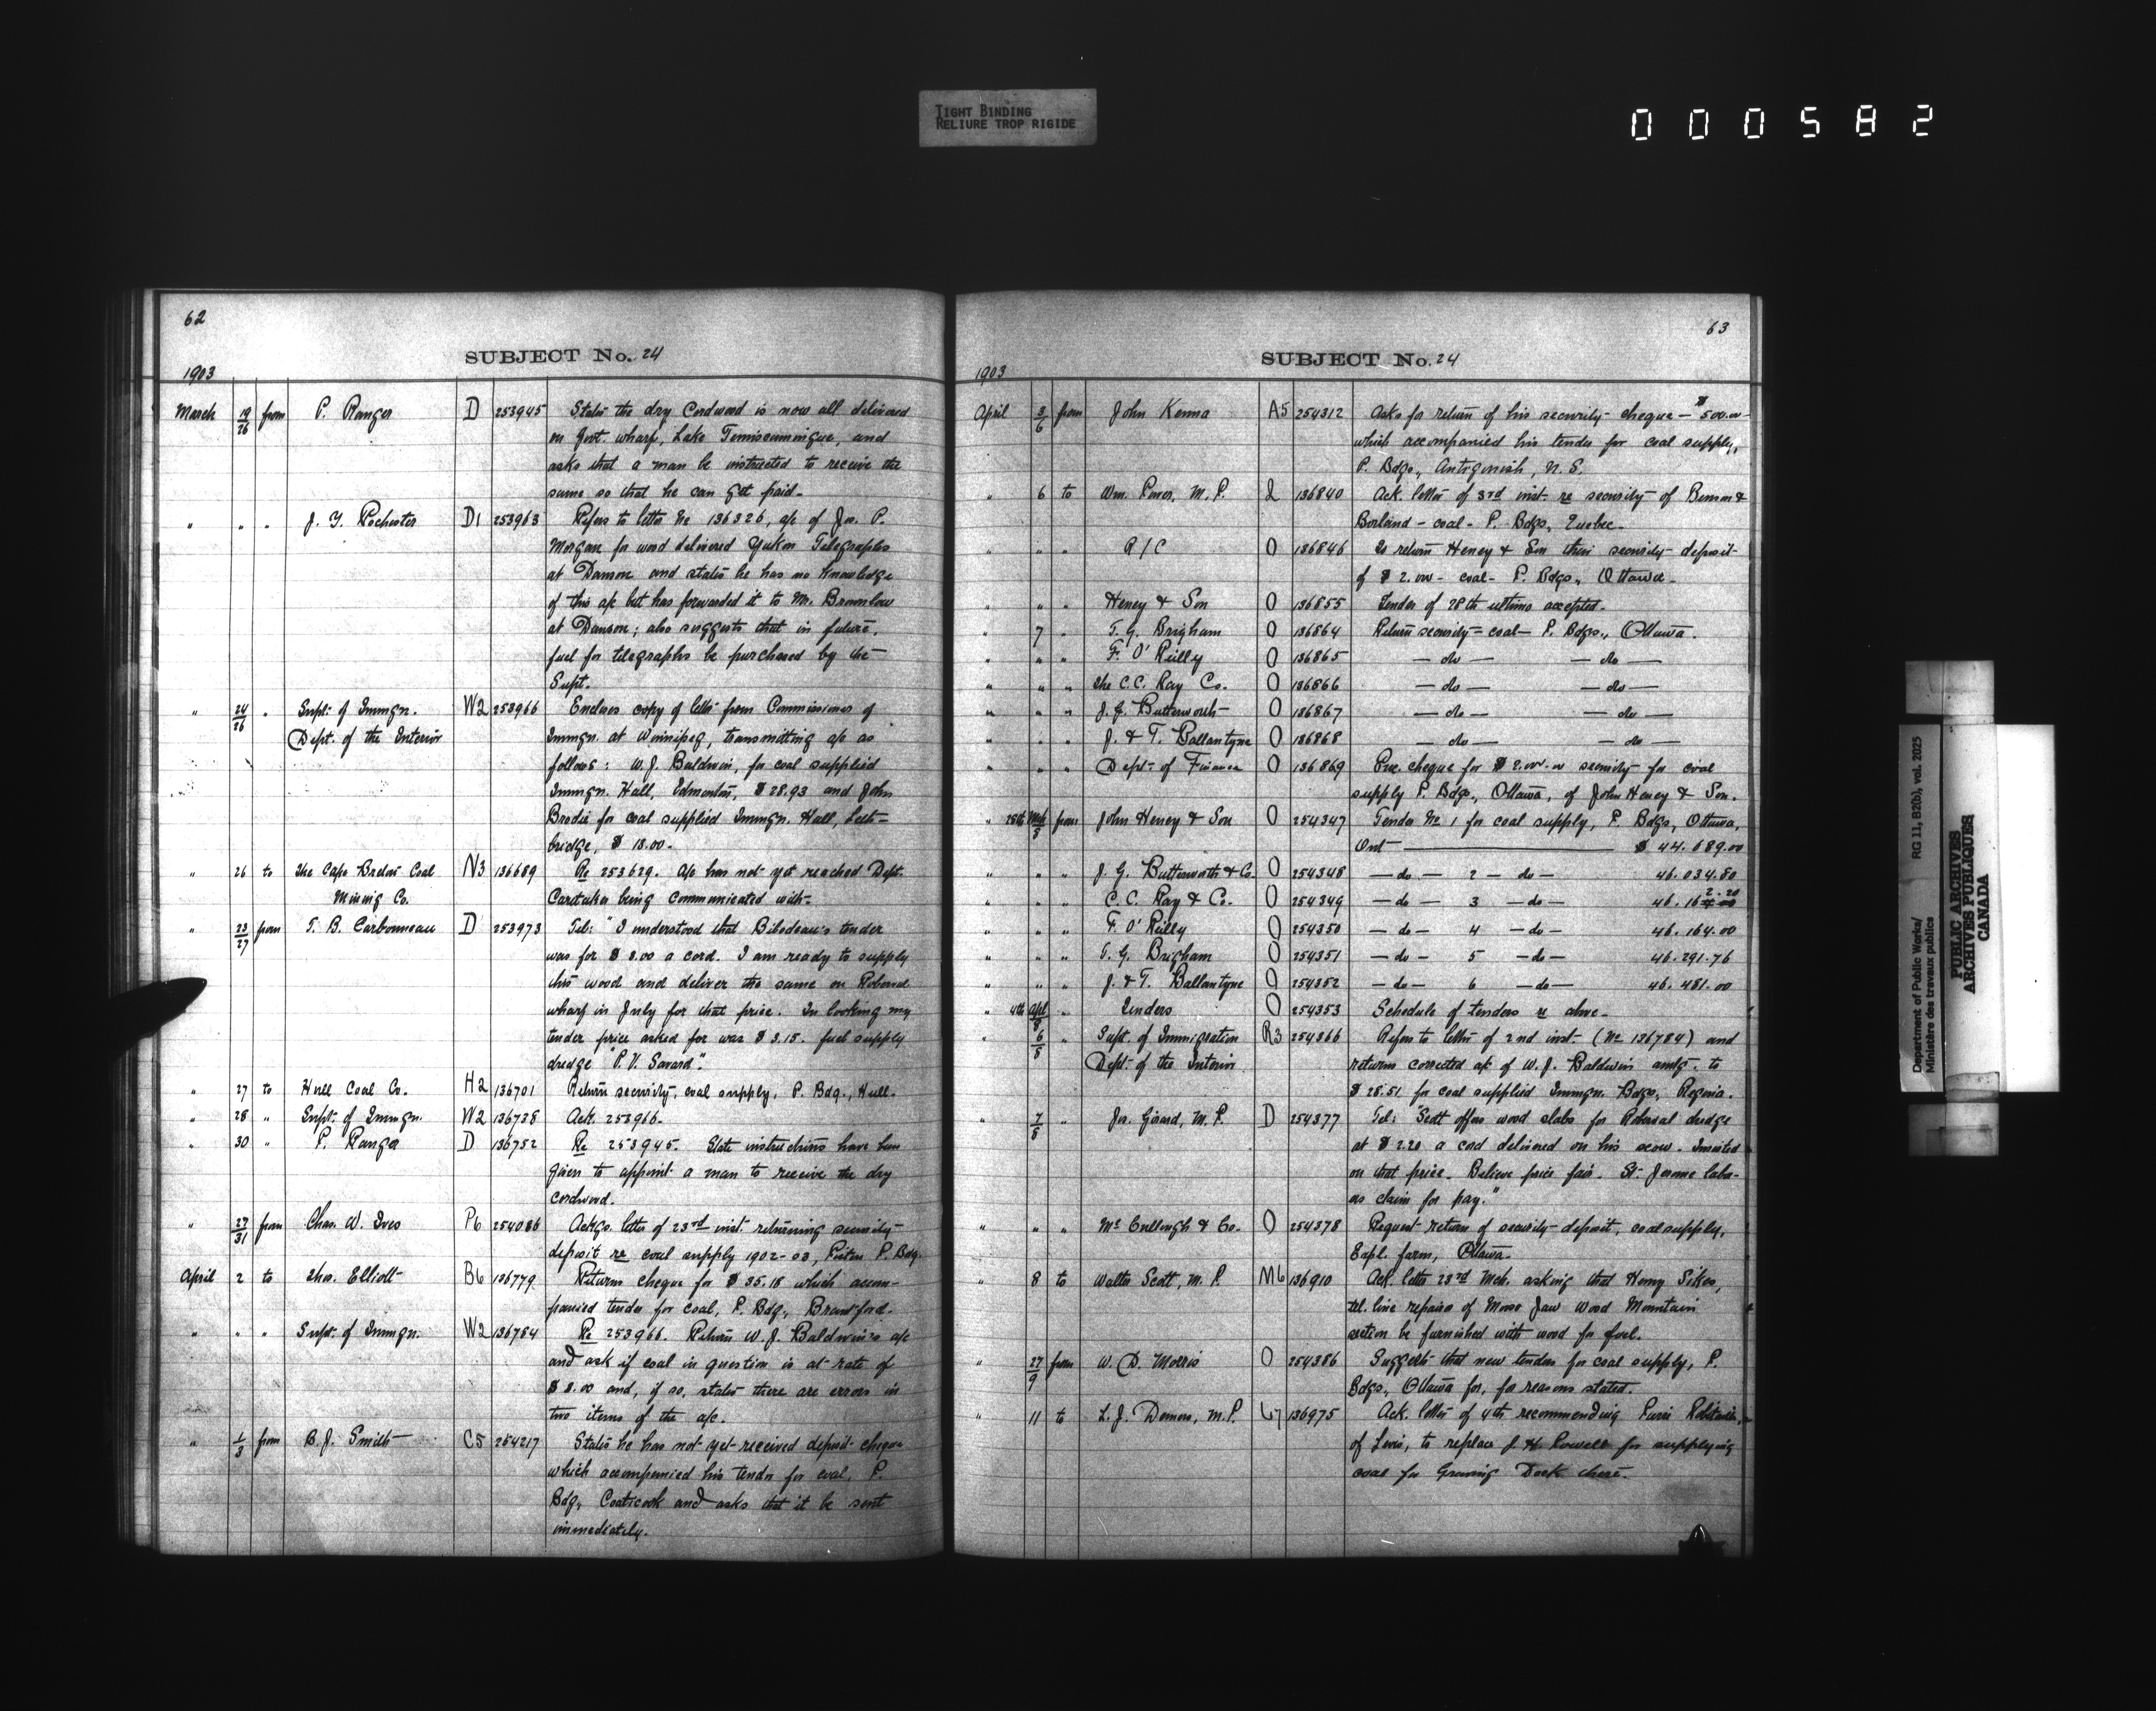 TIGHT BINDING
RELIURE TROP RIGIDE
000582
62
SUBJECT No. 24
1903
March 19/26 from P. Ranger D 253945 States the dry Cordwood is now all delivered
on Govt. wharf, Lake Temiscamingue, and
asks that a man be instructed to receive the
same so that he can get paid.
" " " J. Y. Rochester D1 253963 Refers to letter No 136326, a/c of Jas. P.
Morgan for wood delivered Yukon Telegraphs
at Dawson and states he has no knowledge
of this a/c but has forwarded it to Mr. Brownlow
at Dawson; also suggests that in future,
fuel for telegraphs be purchased by the
Supt.
" 24/26 " Supt. of Immgn. W2 253966 Encloses copy of letter from Commissioner of
Dept. of the Interior Immgn. at Winnipeg, transmitting a/c as
follows: W. J. Baldwin, for coal supplied
Immgn. Hall, Edmonton, $28.93 and John
Brodie for coal supplied Immgn. Hall, Leth=
bridge, $18.00.
" 26 to The Cape Breton Coal N3 136689 Re 253629. A/c has not yet reached Dept.
Mining Co. Caretaker being communicated with.
" 23/27 from T. B. Carbonneau D 253973 Tel: "I understood that Bilodeau's tender
was for $3.00 a cord. I am ready to supply
this wood and deliver the same on Roberval
wharf in July for that price. In looking my
tender price asked for was $3.15. fuel supply
dredge "P. V. Savard".
" 27 to Hull Coal Co. H2 136701 Return security, coal supply, P. Bdg., Hull.
" 28 " Supt. of Immgn. W2 136738 Ack. 253966.
" 30 " P. Ranger D 136752 Re 253945. State instructions have been
given to appoint a man to receive the dry
cordwood.
" 27/31 from Chas. W. Ives P6 254086 Ackgs. letter of 23rd inst. returning security
deposit re coal supply 1902-03, P. Bdg.
April 2 to Thos. Elliott B6 136779 Returns cheque for $35.18 which accom-
panied tender for coal, P. Bdg., Brantford.
" " " Supt. of Immgn. W2 136784 Re 253966. Return W. J. Baldwin's a/c
and ask if coal in question is at rate of
$3.00 and, if so, states there are errors in
two items of the a/c.
" 1/3 from B. J. Smith C5 254217 States he has not yet received deposit cheque
which accompanied his tender for coal, P.
Bdg., Coaticook and asks that it be sent
immediately.
63
SUBJECT No. 24
1903
April 3/6 from John Kenna A5 254312 Asks for return of his security cheque — $500.00
which accompanied his tender for coal supply,
P. Bdgs., Antigonish, N. S.
" 6 to Wm. Power, M. P. 2 136840 Ack. letter of 3rd inst. re security of Benson &
Borland - coal - P. Bdgs., Quebec.
" " " A/C O 136846 To return Heney & Son their security deposit
of $2.00 - coal - P. Bdgs., Ottawa.
" " " Heney & Son O 136855 Tender of 28th ultimo accepted.
" 7 " T. G. Brigham O 136864 Return security = coal - P. Bdgs., Ottawa.
" " " F. O'Reilly O 136865 — do — — do —
" " " The C. C. Ray Co. O 136866 — do — — do —
" " " J. G. Butterworth O 136867 — do — — do —
" " " J. & T. Ballantyne O 136868 — do — — do —
" " " Dept. of Finance O 136869 Enc. cheque for $2.00 security for coal
supply P. Bdgs., Ottawa, of John Heney & Son.
" 28th Mch/8 from John Heney & Son O 254347 Tender No 1 for coal supply, P. Bdgs, Ottawa,
Ont — $44.689.00
" " " J. G. Butterworth & Co. O 254348 — do — 2 — do — 46.034.80
" " " C. C. Ray & Co. O 254349 — do — 3 — do — 46.162.20
" " " F. O'Reilly O 254350 — do — 4 — do — 46.164.00
" " " T. G. Brigham O 254351 — do — 5 — do — 46.291.76
" " " J. & T. Ballantyne O 254352 — do — 6 — do — 46.481.00
" 4th Apl/8 " Tenders O 254353 Schedule of tenders re above.
" 6/8 " Supt. of Immigration R3 254366 Refers to letter of 2nd inst. (No 136784) and
Dept. of the Interior returns corrected a/c of W. J. Baldwin amtg. to
$28.51 for coal supplied Immgn. Bdgs, Regina.
" 7/8 " Jos. Girard, M. P. D 254377 Tel: "Scott offers wood slabs for Roberval dredge
at $2.20 a cord delivered on his scow. Insisted
on that price. Believe price fair. St. Jerome labor-
ers claim for pay."
" " " McCullough & Co. O 254378 Request return of security deposit, coal supply,
Expl. farm, Ottawa.
" 8 to Walter Scott, M. P. M6 136910 Ack. letter 23rd Mch. asking that Henry Sikes,
tel. line repairer of Moose Jaw Wood Mountain
section be furnished with wood for fuel.
" 27/9 from W. D. Morris O 254386 Suggests that new tenders for coal supply, P.
Bdgs., Ottawa for, for reasons stated.
" 11 to L. J. Demers, M. P. L7 136975 Ack. letter of 4th recommending Robitaille,
of Levis, to replace J. H. Powell for supplying
coal for Graving Dock there.
Department of Public Works/ RG 11, B2(b), vol. 2025
Ministère des travaux publics
PUBLIC ARCHIVES
ARCHIVES PUBLIQUES
CANADA